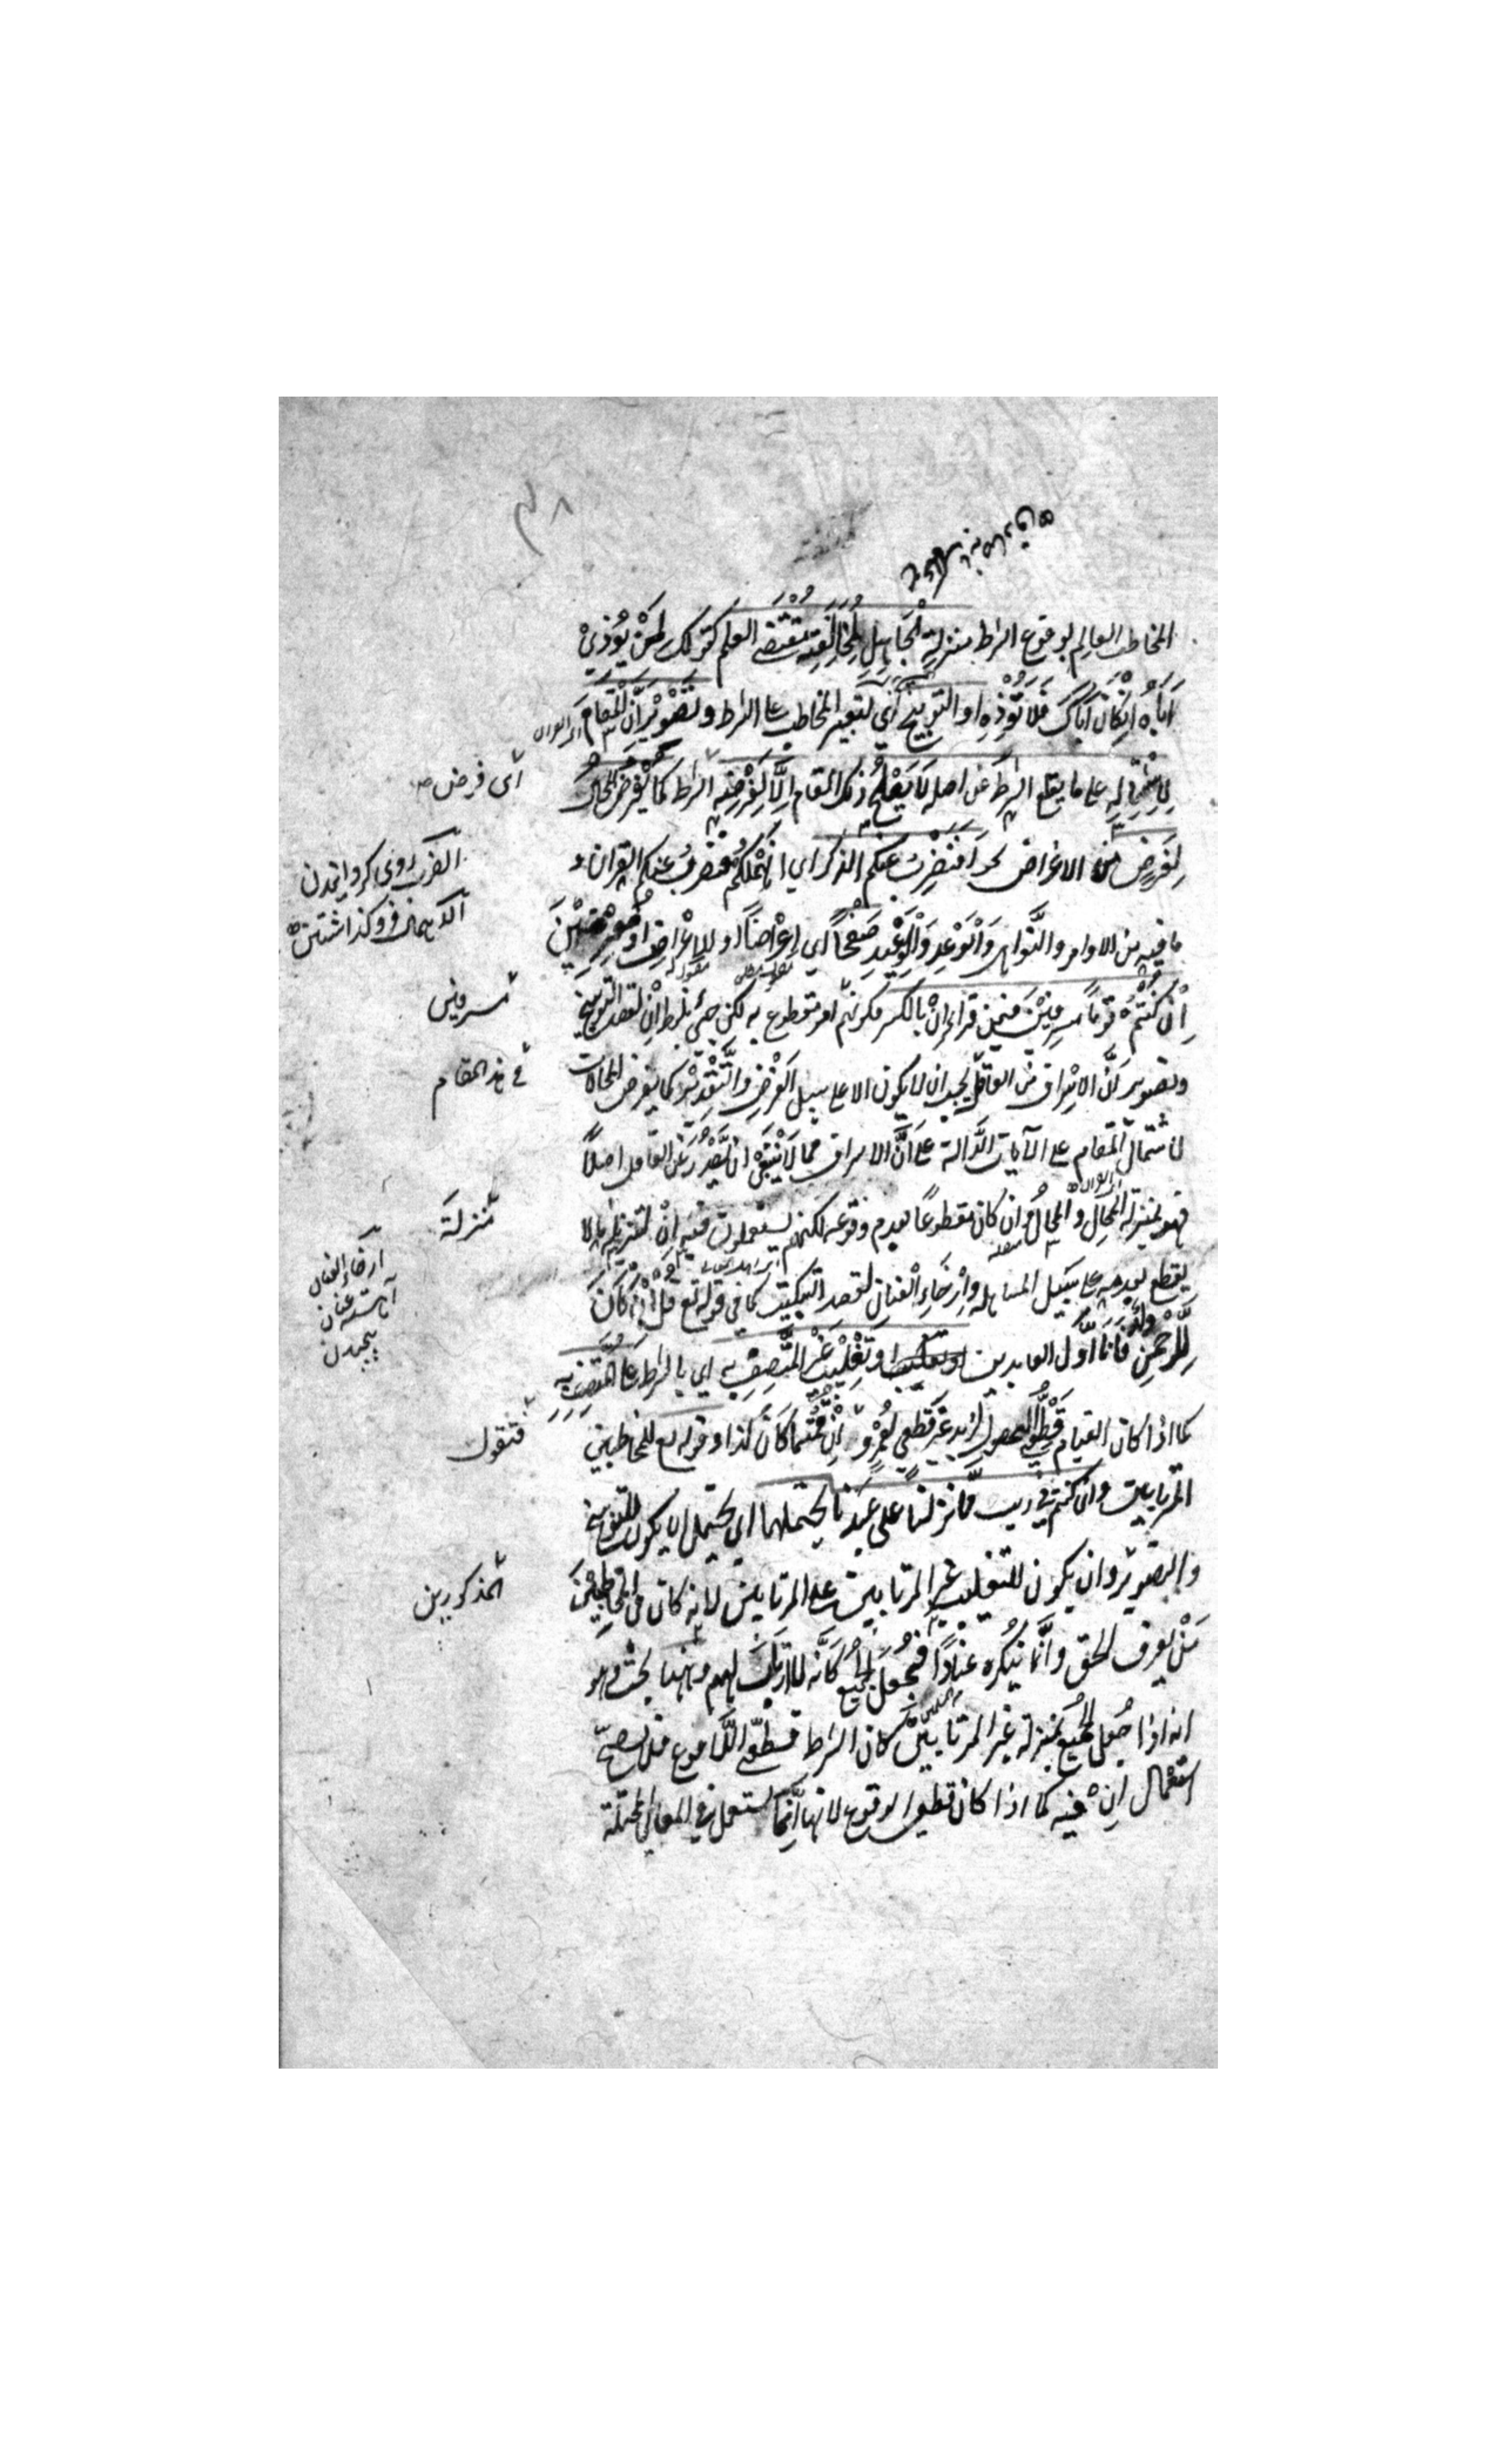 المخاطب العالم بوقوع الشرط منزلة الجاهل لمخالفته مقتضى العلم كقولك لمن يؤذي
اباه ان كان اباك فلا تؤذه او التوبيخ اي لتعيير المخاطب على الشرط وتصوير ان المقام
لاشتماله على ما يقلع الشرط عن اصله لا يصلح ذلك المقام الا لفرضه الشرط كما يفرض المحال
اى فرض
لغرض من الاغراض نحو افنضرب عنكم الذكر اي انهملكم فنضرب عنكم القران و
الضرب روى كردانيدن
الاهمال فروكذاشتن
ما فيه من الاوامر والنواهى والوعد والوعيد صفحا اي اعراضا او للاعراض او معرضين
ان كنتم قوما مسرفين فيمن قرا ان بالكسر فكونهم امر مقطوع به لكن جئ بلفظ ان لقصد التوبيخ
مسرفين
وتصوير ان الاسراف من العاقل يجب ان لا يكون الا على سبيل الفرض والتقدير كما يفرض المحالات
في هذا المقام
لاشتمال المقام على الآيات الدالة على ان الاسراف مما لا ينبغي ان يصدر عن العاقل اصلا
فهو بمنزلة المحال والمحال وان كان مقطوعا بعدم وقوعه لكنهم يستعملون فيه ان لتنزيله ما لا
منزلة
يقطع بعدمه على سبيل المساهلة وارخاء العنان لقصد التبكيت كما في قوله تع قل ان كان
ارخاء العنان
للرحمن ولد فانا اول العابدين او تغليب غير المتصف به اي بالشرط على المتصف به
كما اذا كان القيام قطعي الحصول لزيد غير قطعي لعمرو ان قمتما كان كذا وقوله تع للمخاطبين
فتقول
المرتابين وان كنتم في ريب مما نزلنا على عبدنا يحتملهما اي يحتمل ان يكون للتوبيخ
والتصوير وان يكون لتغليب غير المرتابين على المرتابين لانه كان في المخاطبين
المذكورين
من يعرف الحق وانما ينكره عنادا فجعل الجميع كانه لا ارتياب لهم وههنا بحث وهو
انه اذا جعل الجميع بمنزلة غير المرتابين كان الشرط قطعي اللاوقوع فلا يصح
استعمال ان فيه كما اذا كان قطعي الوقوع لانها انما تستعمل في المعاني المحتملة